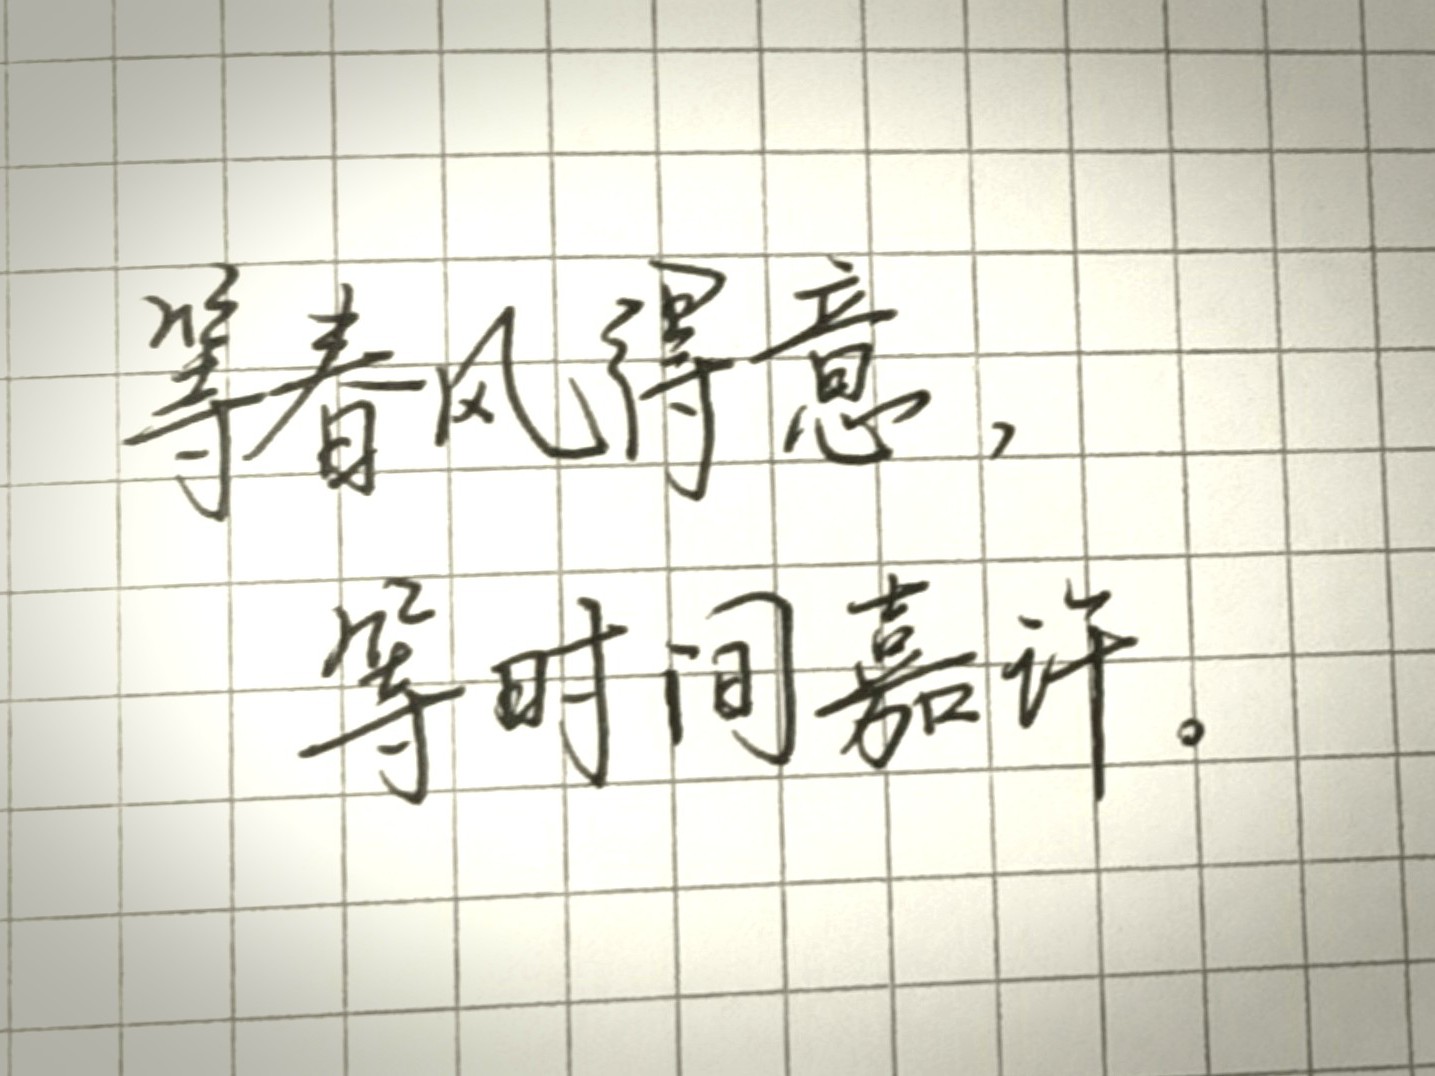 等春风得意，
等时间嘉许。